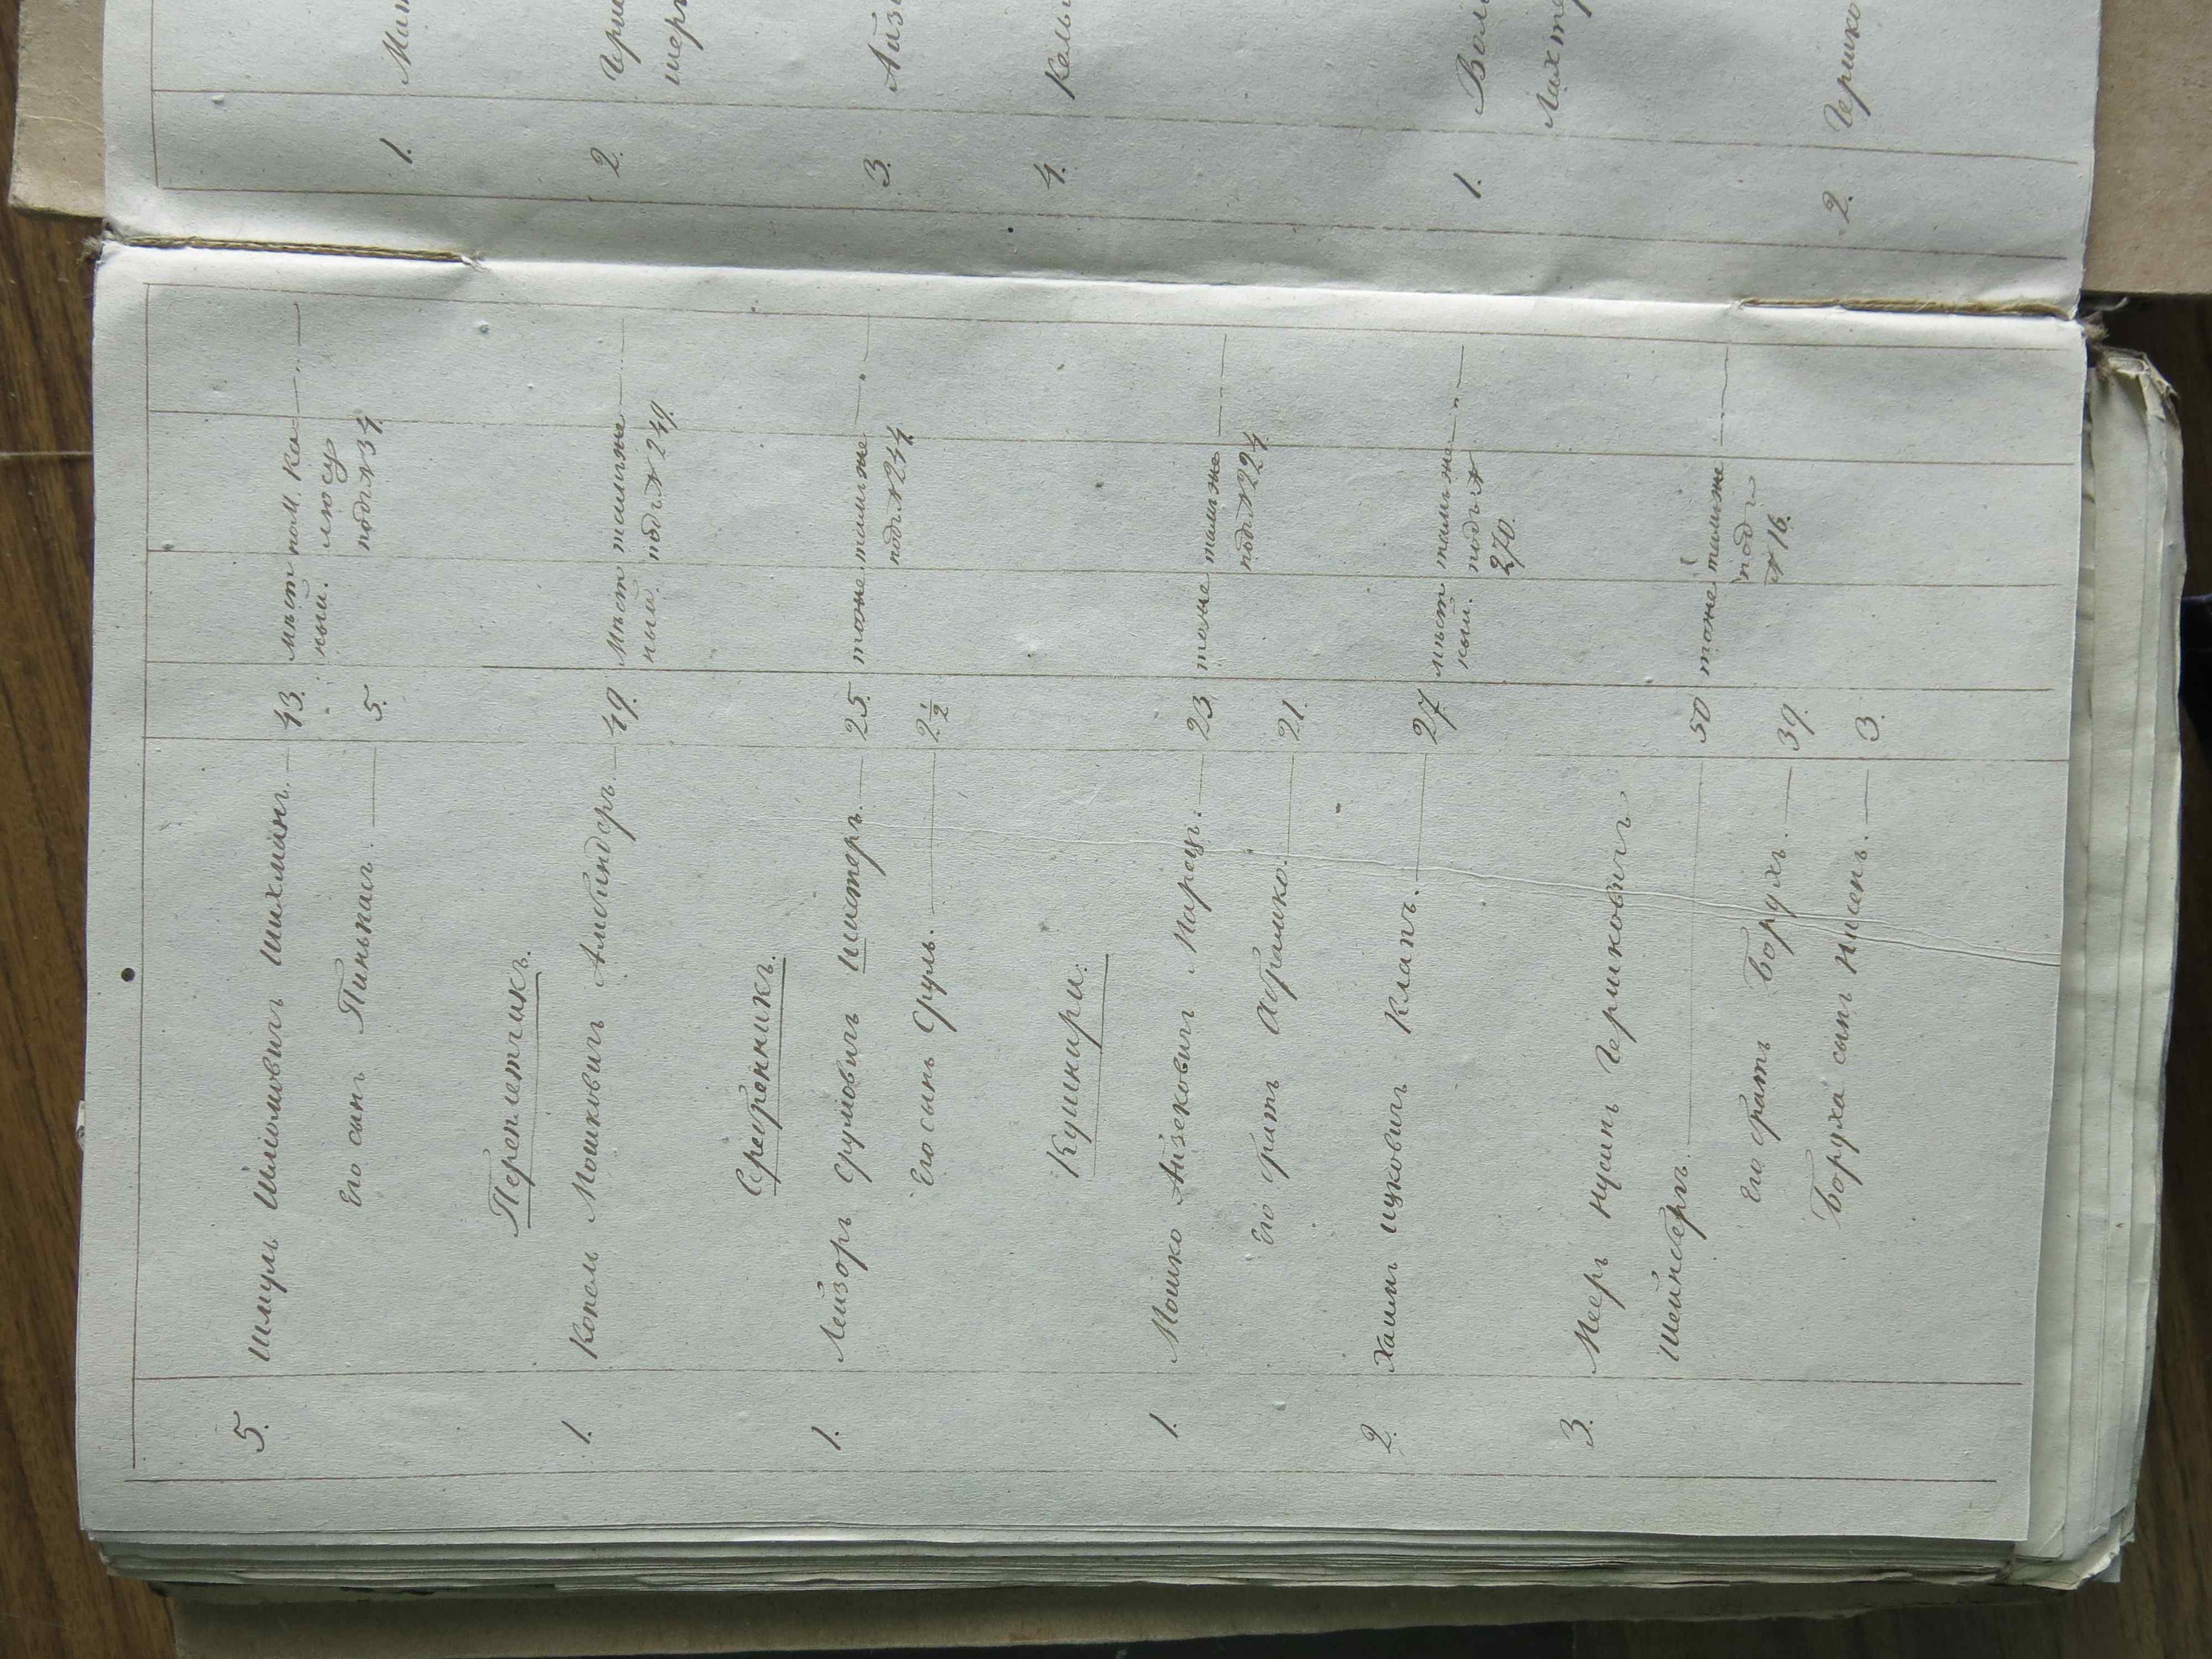 5. Шмуль Шлiомовичъ Шихманъ. — 43. мѣст пом. Ка —
ный. люсу
Его сынъ Пинькасъ. — 5. подъ № 34.
Переплетчикъ.
1. Копель Мошковичъ Амбиндеръ. — 49. мѣст тамъже —
ный. подъ № 249.
Сребронникъ.
1. Лейзоръ Срумовичъ Шистеръ. — 25. тоже тамъже —
подъ № 244
Его сынъ Сруль. — 2½
Кушнири.
1. Мошко Айзековичъ Марецъ. — 23. тоже тамъже —
подъ № 224
Его братъ Абрамко. — 21.
2. Хаимъ Ицковичъ Клапъ. — 27. мѣст тамъже —
ный. подъ №
270.
3. Мееръ Нусинъ Гершковичъ
Шейнбергъ. — 50 тоже тамъже —
подъ
№ 16.
Его братъ Борухъ. — 39.
Боруха сынъ Нисенъ. — 3.
1.
2.
3.
4.
1.
2. Гершко